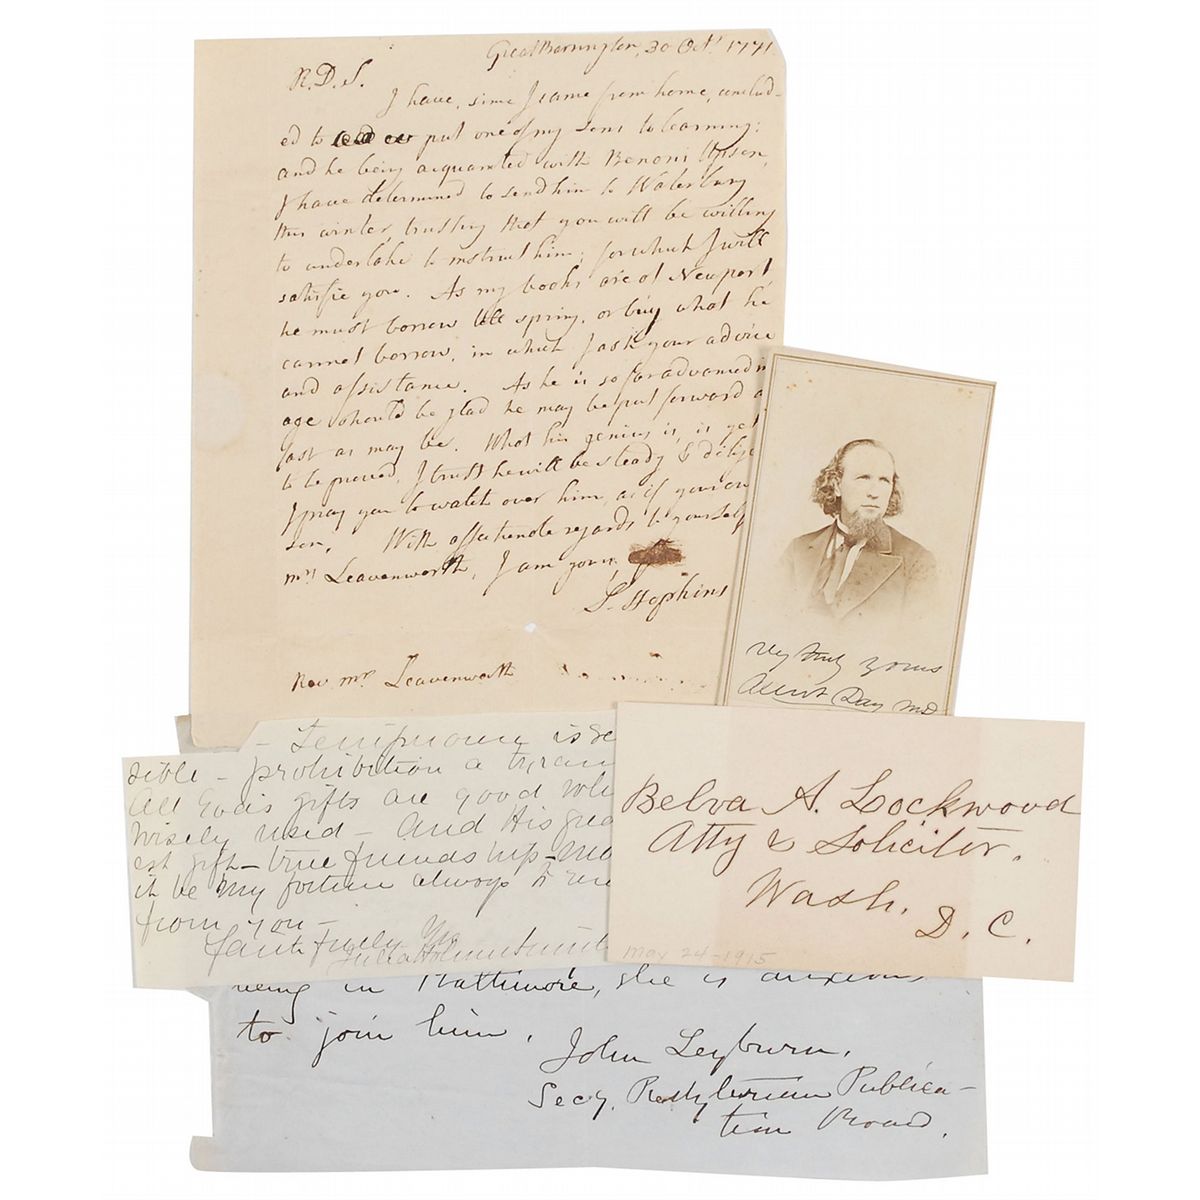 Great Barrington, 30 Octr 1771
R.D.S.
I have, since I came from home, conclud-
ed to put one of my sons to learning;
and he being acquainted with Benoni Upson,
I have determined to send him to Waterbury
this winter, trusting that you will be willing
to undertake to instruct him; for which I will
satisfie you. As my books are at Newport
he must borrow till spring, or buy what he
cannot borrow, in which I ask your advice
and assistance. As he is so far advanced in
age should be glad he may be put forward as
fast as may be. What his genius is, is yet
to be proved, I trust he will be steady & dilige
I pray you to watch over him, as if your own
son. With affectionate regards to yourself
mrs Leavenworth, I am yours,
S. Hopkins
Rev. mr Leavenworth
Very truly yours
Albert Day MD
- Temperance is se
sible - prohibition a tyran
All God's gifts are good whe
wisely used - And His grea
est gift - true friendship - may
it be my fortune always to
from you -
Faithfully Yrs
Belva A. Lockwood
Atty & Solicitor.
Wash. D. C.
May 24-1915
being in Baltimore, she is anxious
to join him.
John Leyburn,
Secy. Presbyterian Publica-
tion Board.